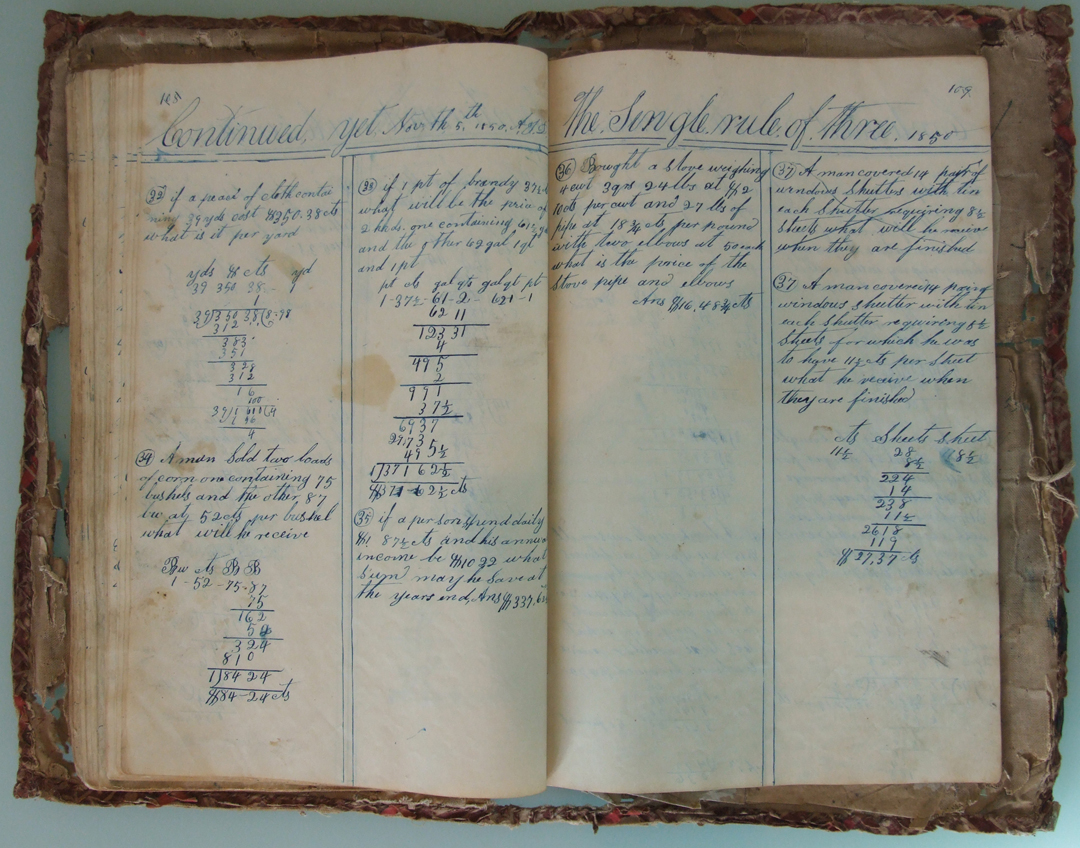 Continued yet Nov the 5th 1850
33 if a peace of cloth contai
ning 39 yds cost $350.38 cts
what is it per yard
yds $ cts yd
39 350 38 - 1
1
39)350 38(8-98
312
383
351
328
312
16
100
4
34 A man Sold two loads
of corn one containing 75
bushels and the other 87
bu at 52 cts per bushel
what will he receive
Bu cts B B
1-52-75-87
75
162
52
324
810
1)8424
$84-24 cts
if 1 pt of brandy
what will be the price of
2 hhds. one containing
and the other 62 gal 1 qt
and 1 pt
pt cts gal qts gal qt pt
1-37½-61-2- 62 1-1
62 11
123 31
4
495
2
991
37½
6937
2973
495½
1)37162½
$371-62½ cts
35 if a person Spend daily
$1 87½ cts and his annual
income be $1022 what
Sum may he Save at
the years end, Ans $337,
109
The Single rule of three. 1850
36 Bought a Stove weighing
4 cwt 3 qrs 24 lbs at $2
10 cts per cwt and 27 lbs of
pipe at 18¾ cts per pound
with two elbows at 50 each
what is the price of the
Stove pipe and elbows
Ans $16,48¾ cts
37 A man covered 14 pair of
windows Shutters with tin
each Shutter requiring 8½
Sheets what will he receive
when they are finished
37 A man covering
windows shutter with tin
each Shutter requiring 8½
Sheets for which he was
to have 11½ cts per Sheet
what he receive when
they are finished
cts Sheets Sheet
11½ 28 8½
8½
224
14
238
11½
2618
119
$27,37 cts